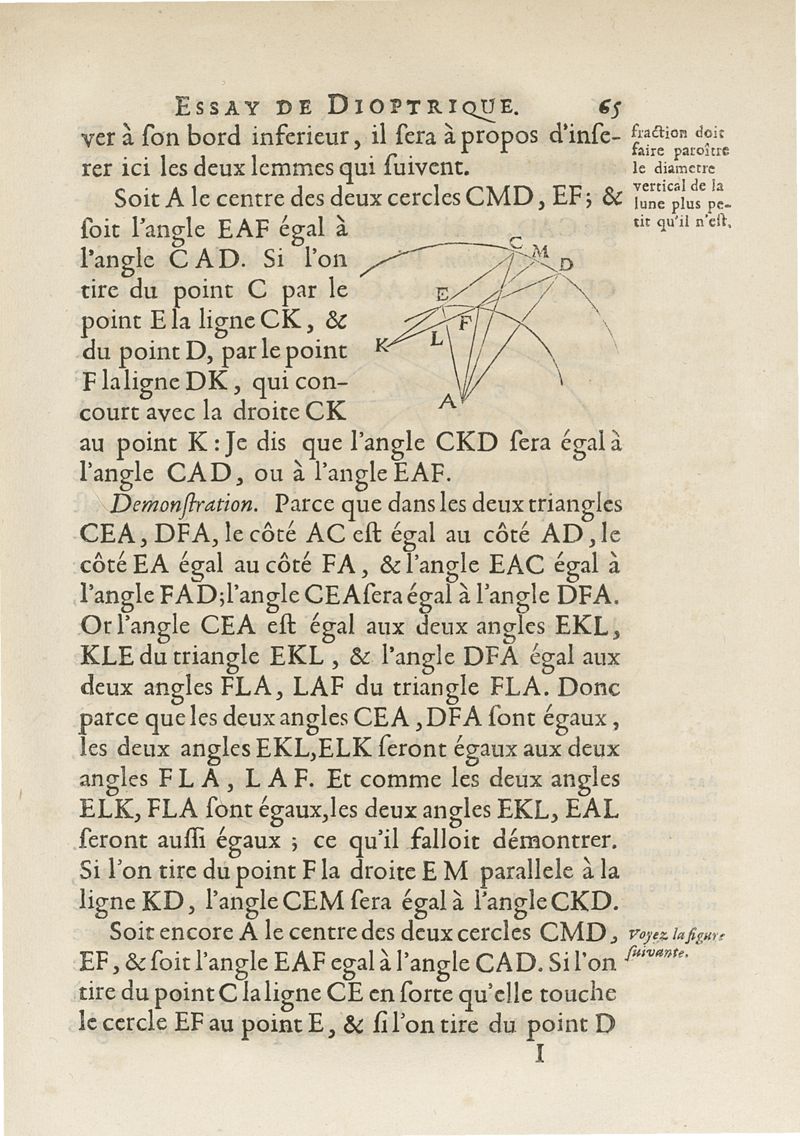 ESSAY DE DIOPTRIQUE. 65
ver à ſon bord inferieur, il ſera à propos d'inſe-
rer ici les deux lemmes qui ſuivent.
Soit A le centre des deux cercles CMD, EF; &
ſoit l'angle EAF égal à
l'angle CAD. Si l'on
tire du point C par le
point E la ligne CK, &
du point D, par le point
F la ligne DK, qui con-
court avec la droite CK
au point K: Je dis que l'angle CKD ſera égal à
l'angle CAD, ou à l'angle EAF.
Demonſtration. Parce que dans les deux triangles
CEA, DFA, le côté AC eſt égal au côté AD, le
côté EA égal au côté FA, & l'angle EAC égal à
l'angle FAD; l'angle CEA ſera égal à l'angle DFA.
Or l'angle CEA eſt égal aux deux angles EKL,
KLE du triangle EKL, & l'angle DFA égal aux
deux angles FLA, LAF du triangle FLA. Donc
parce que les deux angles CEA, DFA ſont égaux,
les deux angles EKL, ELK ſeront égaux aux deux
angles FLA, LAF. Et comme les deux angles
ELK, FLA ſont égaux, les deux angles EKL, EAL
ſeront auſſi égaux; ce qu'il falloit démontrer.
Si l'on tire du point F la droite EM parallele à la
ligne KD, l'angle CEM ſera égal à l'angle CKD.
Soit encore A le centre des deux cercles CMD,
EF, & ſoit l'angle EAF egal à l'angle CAD. Si l'on
tire du point C la ligne CE en ſorte qu'elle touche
le cercle EF au point E, & ſi l'on tire du point D
I
fraction doit
faire paroître
le diametre
vertical de la
lune plus pe-
tit qu'il n'eſt.
Voyez la figure
ſuivante.
C
M
D
E
F
L
K
A